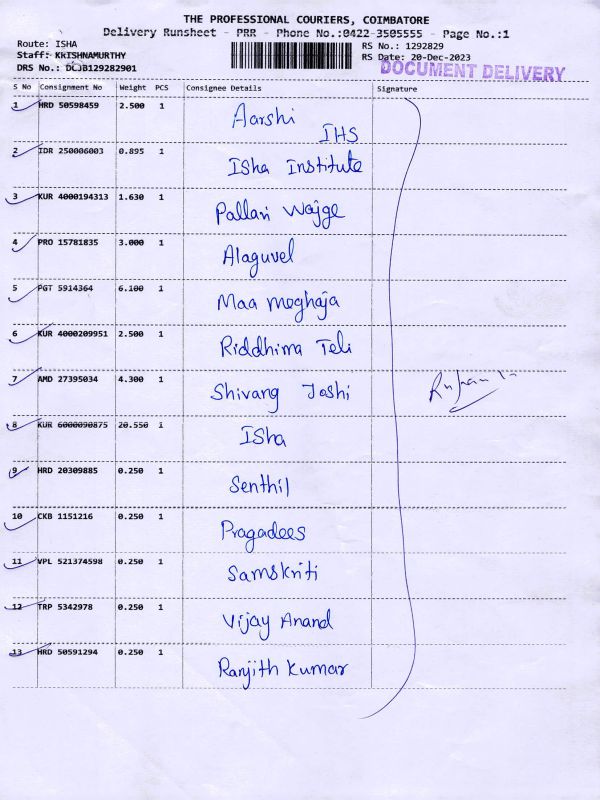 THE PROFESSIONAL COURIERS, COIMBATORE
Delivery Runsheet - PRR - Phone No.:0422-3505555 - Page No.:1
Route: ISHA
Staff: KRISHNAMURTHY
RS No.: 1292829
RS Date: 20-Dec-2023
DRS No.: 129282901
DOCUMENT DELIVERY
S No Consignment No Weight PCS Consignee Details Signature
1 HRD 50598459 2.500 1 Aarshi IHS
2 IDR 250006003 0.895 1 Isha Institute
3 KUR 4000194313 1.630 1 Pallavi Wajge
4 PRO 15781835 3.000 1 Alaguvel
5 PGT 5914364 6.100 1 Maa meghaja
6 KUR 4000209951 2.500 1 Riddhima Teli
7 AMD 27395034 4.300 1 Shivang Joshi
8 KUR 6000090875 20.550 1 Isha
9 HRD 20309885 0.250 1 Senthil
10 CKB 1151216 0.250 1 Pragadees
11 VPL 521374598 0.250 1 Samskriti
12 TRP 5342978 0.250 1 Vijay Anand
13 HRD 50591294 0.250 1 Ranjith Kumar